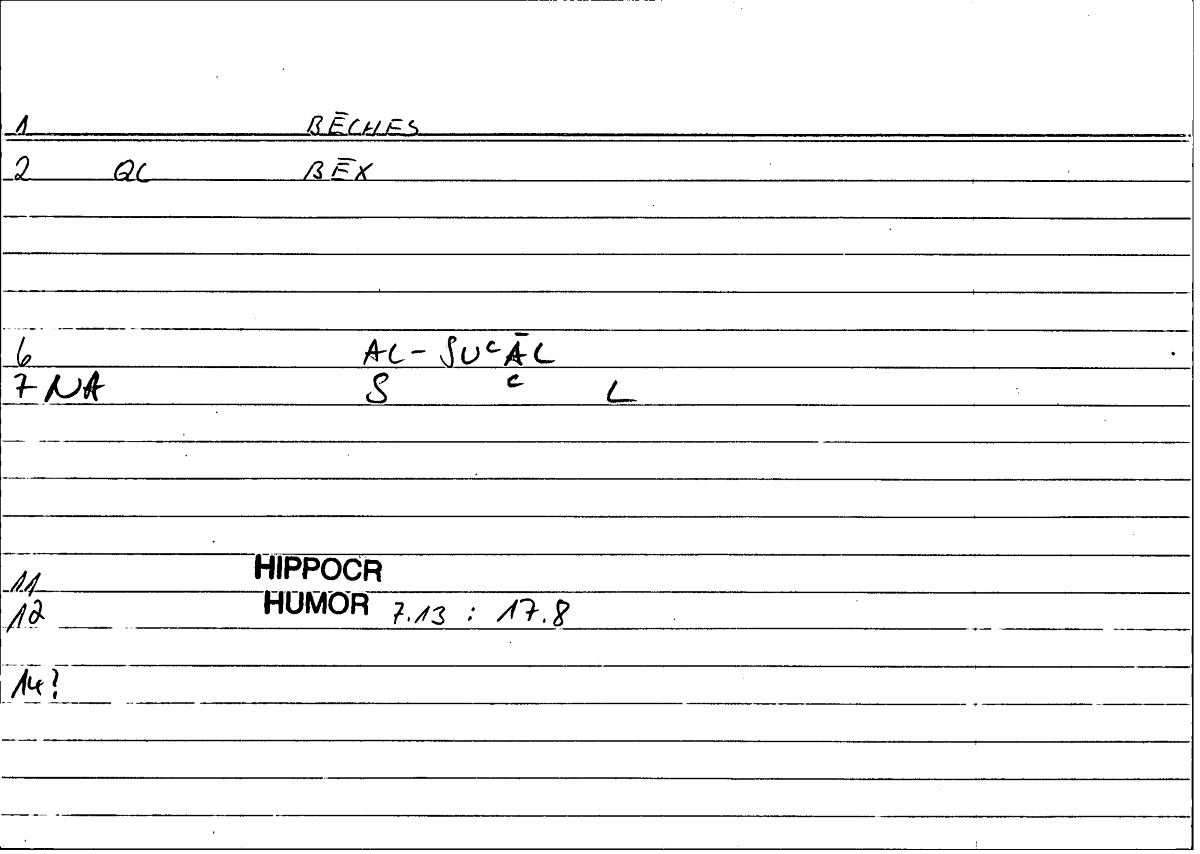 1 BĒCHES
2 QC BĒX
6 AL-SUᶜĀL
7 NA S ᶜ L
11 HIPPOCR
12 HUMOR 7.13 : 17.8
14?